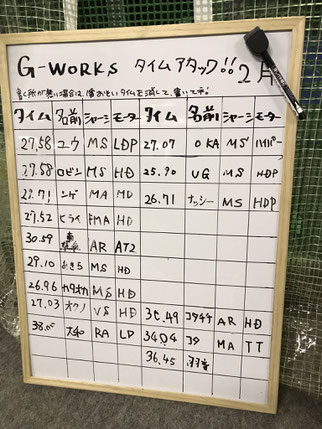 G-WORKS タイムアタック!! 2月
書く所が無い場合は、遅いタイムを消して、書いて下
タイム 名前 シャーシ モーター タイム 名前 シャーシ モーター
27.58 ユウ MS LDP 27.07 OKA MS ハイパー
27.58 ロビン MS HD 25.90 UG MS HDP
29.71 シゲ MA MD 26.71 ナッシー MS HDP
27.52 ヒライ FMA HD
30.59 AR AT2
29.10 あきら MS HD
26.96 カタオカ MS HD
27.03 オクノ VS HD 30.49 コタケ AR HD
38.05 RA LD 34.04 コタ MA TT
36.45 羽音